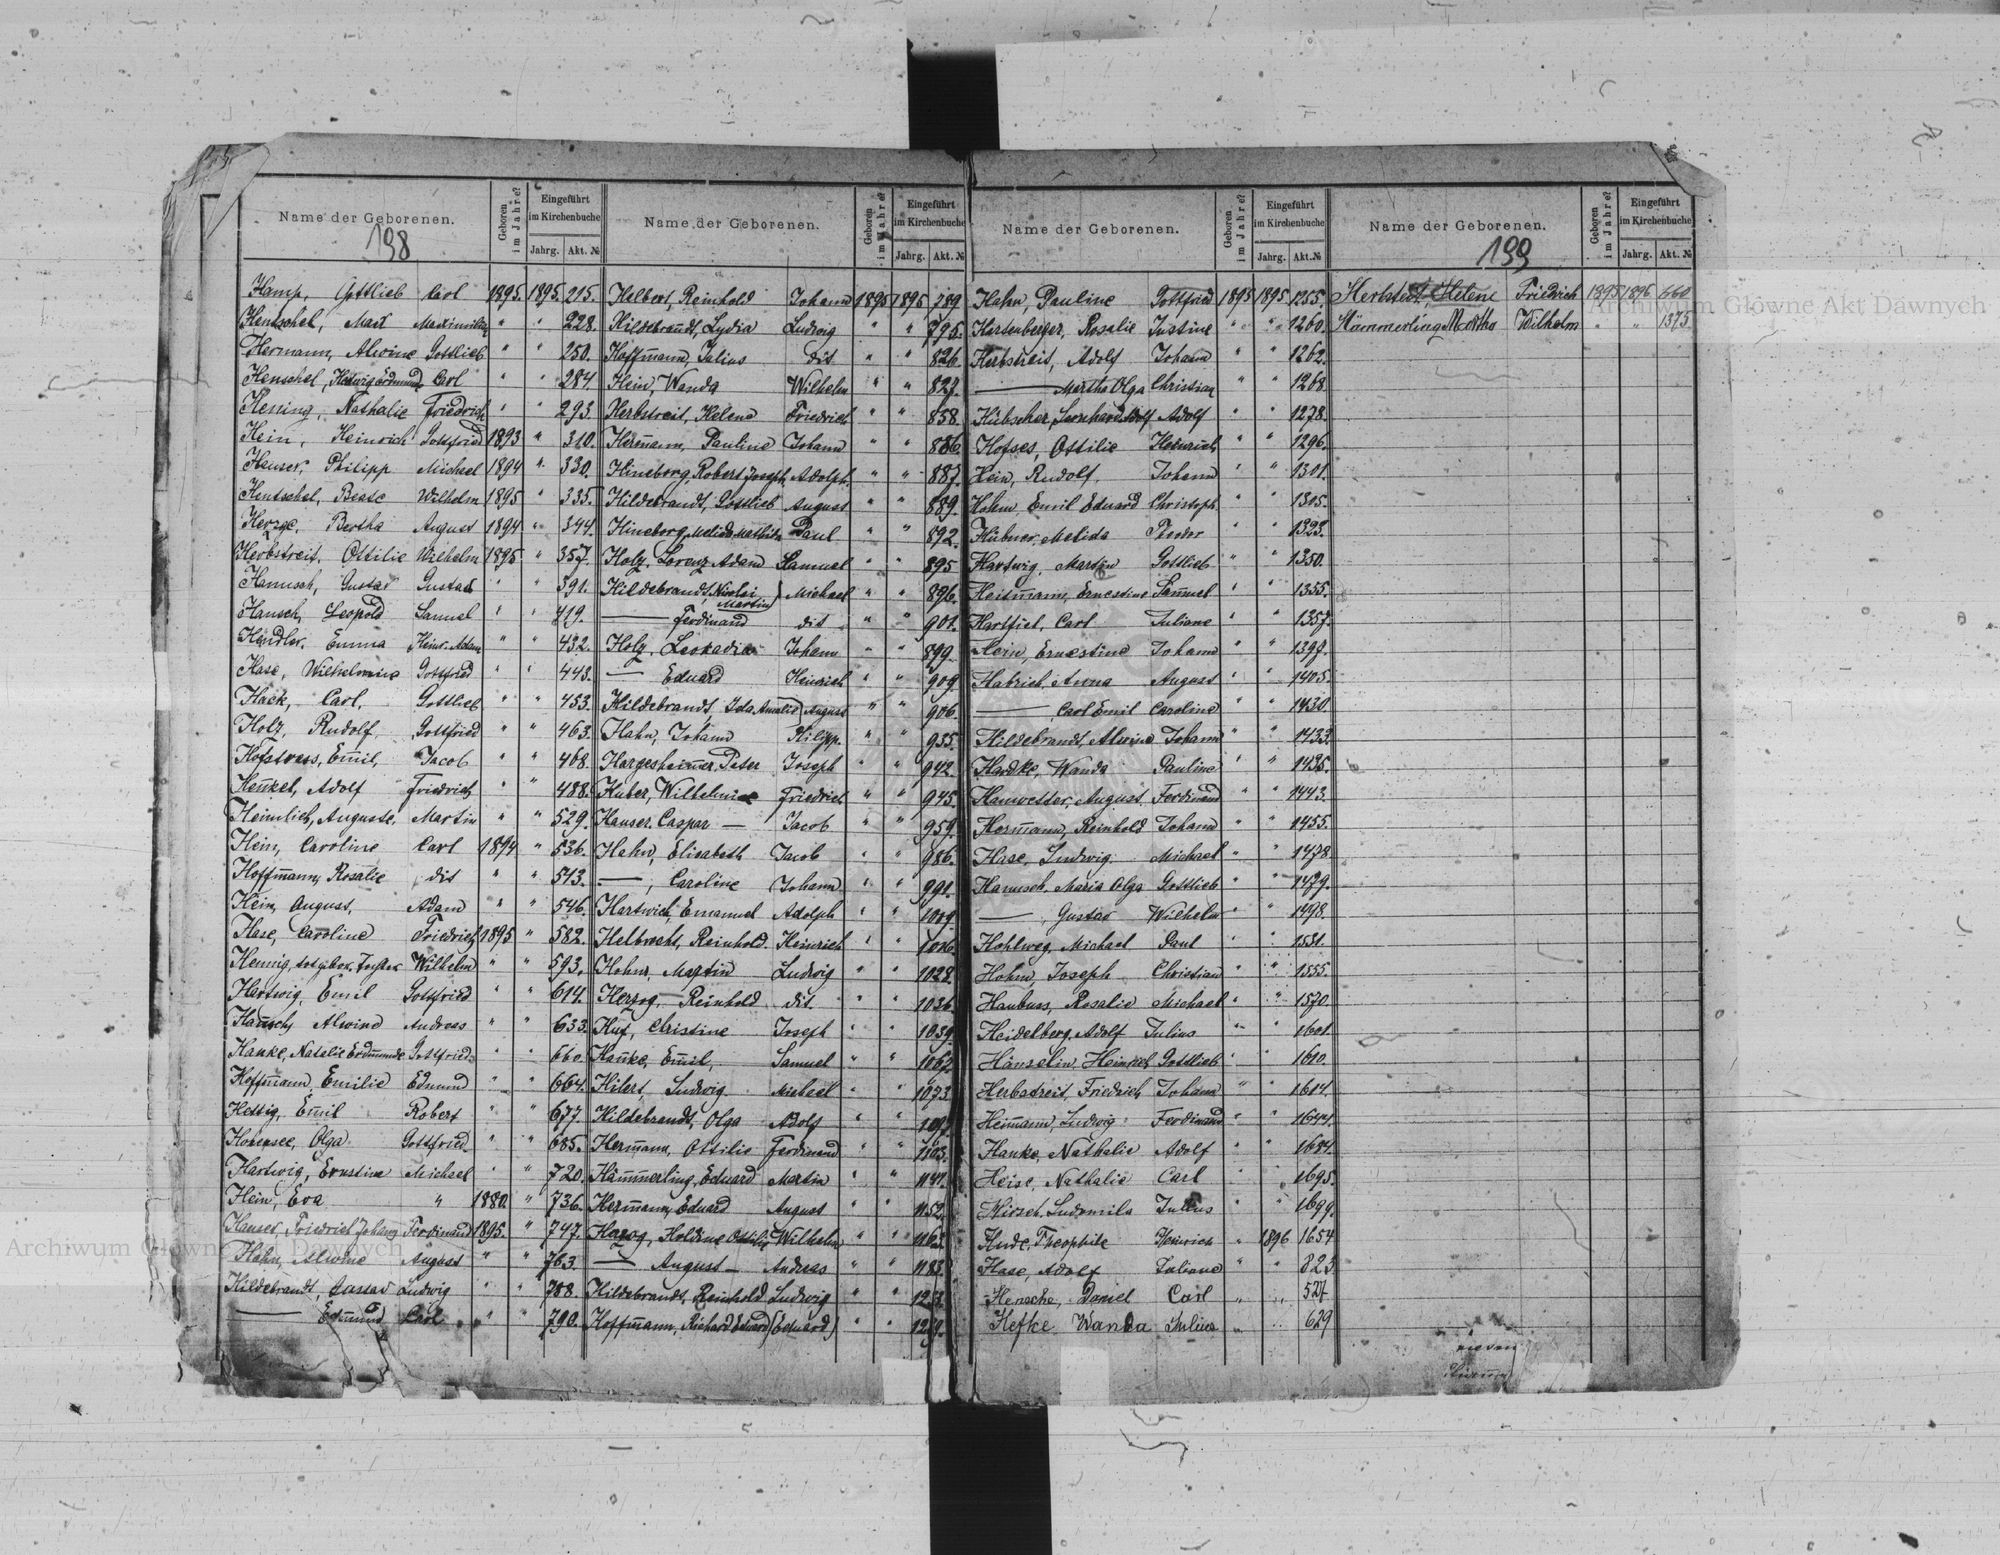 Name der Geborenen. Geboren im Jahre? Eingeführt im Kirchenbuche Jahrg. Akt. №
198
Hamp, Gottlieb Carl 1895. 1895. 215.
Hentschel, Max Maximilian " " 228.
Hermann, Alwine Gottlieb " " 250.
Henschel, Hedwig Erdmund Carl " " 284
Hening, Nathalie Friedrich " " 293.
Hein, Heinrich Gottfried 1893 " 310.
Heuser, Philipp Michael 1894 " 330.
Hentschel, Beate Wilhelm 1895 " 335.
Herzge, Bertha August 1894 " 344.
Herbstreit, Ottilie Wilhelm 1895 " 357.
Hanusch, Gustav Gustav " " 391.
Hansch, Leopold Samuel " " 419.
Händler, Emma Heinr. Adam " " 432.
Hase, Wilhelmine Gottfried " " 443.
Hack, Carl, Gottlieb " " 453.
Holz, Rudolf, Gottfried " " 463.
Hofstrass, Emil, Jacob " " 468.
Henkel, Adolf Friedrich " " 488.
Heimlich, Auguste. Martin " " 529.
Hein, Caroline Carl 1894 " 536.
Hoffmann, Rosalie dit " " 543.
Hein, August, Adam " " 546.
Hase, Caroline Friedrich 1895 " 582.
Hennig, totgebor. Tochter Wilhelm " " 593.
Hartwig, Emil Gottfried " " 614.
Hansch, Alwine Andreas " " 633.
Hanke, Natalie Erdmunde Gottfried " " 660.
Hoffmann, Emilie Edmund " " 664.
Hettig, Emil Robert " " 677.
Hohensee, Olga Gottfried " " 685.
Hartwig, Ernstine Michael " " 720.
Hein, Eva " 1880. " 736.
Hauser, Friedrich Johann Ferdinand 1895. " 747.
Hahn, Alwine August " " 763.
Hildebrandt, Gustav Ludwig " " 788.
— Edmund Carl " " 790.
Name der Geborenen. Geboren im Jahre? Eingeführt im Kirchenbuche Jahrg. Akt. №
Helbert, Reinhold Johann 1895 1895 789.
Hildebrandt, Lydia Ludwig " " 795.
Hoffmann, Julius dit " " 826.
Hein, Wanda Wilhelm " " 827.
Herbstreit, Helene Friedrich " " 858.
Hermann, Pauline Johann " " 886.
Hineborg, Robert Joseph Adolph " " 887.
Hildebrandt, Gottlieb August " " 889.
Hineborg, Melida Mathilde Paul " " 892.
Holz, Lorenz Adam Samuel " " 895
Hildebrandt, Nicolai Martin) Michael " " 896.
— Ferdinand dit " " 901.
Holz, Leokadia Johann " " 899.
— Eduard Heinrich " " 909.
Hildebrandt, Ida Amalie) August " " 906.
Hahn, Johann Philipp. " " 935.
Hargesheimer, Peter Joseph " " 942.
Huber, Wilhelmine Friedrich " " 945.
Hauser, Caspar — Jacob " " 959.
Hahn, Elisabeth Jacob " " 986.
—, Caroline Johann " " 991.
Hartwich, Emanuel Adolph " " 1009.
Helbrecht, Reinhold Heinrich " " 1016.
Hohm, Martin Ludwig " " 1028.
Herzog, — Reinhold dit. " " 1036.
Huf, Christine Joseph " " 1039.
Hanke, Emil, Samuel " " 1062.
Hilert, Ludwig Michael " " 1073.
Hildebrandt, Olga Adolf " "
Hermann, Ottilie Ferdinand " " 1103.
Hämmerling, Eduard Martin " " 1141.
Hermann, Eduard August " " 1152.
Herzog, Holdine Ottilie Wilhelm " " 1163.
— August — Andreas " " 1183.
Hildebrandt, Reinhold Ludwig " "
Hoffmann, Richard Eduard (Eduard) " "
Name der Geborenen. Geboren im Jahre? Eingeführt im Kirchenbuche Jahrg. Akt. №
Hahn, Pauline Gottfried 1895 1895 1255.
Hertenberger, Rosalie Justine " " 1260.
Herbstreit, Adolf Johann " " 1262.
— Martha Olga Christian " " 1268.
Hübscher, Leonhard Adolf Adolf " " 1278.
Hofses, Ottilie Heinrich " " 1296.
Hein, Rudolf, Johann " " 1301.
Hohm, Emil Eduard Christoph " " 1305.
Hübner, Melida Theodor " " 1323.
Hartwig, Martin Gottlieb " " 1350.
Heitmann, Ernestine Samuel " " 1355.
Hartfiel, Carl Juliane " " 1357.
Hein, Ernestine Johann " " 1397.
Habrich, Anna August " " 1405.
—, Carl Emil Caroline " " 1430.
Hildebrandt, Alwine Johann " " 1433.
Hardke, Wanda Pauline " " 1435.
Hanwetter, August Ferdinand " " 1443.
Hermann, Reinhold Johann " " 1455.
Hase, Ludwig Michael " " 1478.
Hanusch, Maria Olga Gottlieb " " 1479.
—, Gustav Wilhelm " " 1498.
Hohlweg, Michael Paul " " 1531.
Hohm, Joseph Christian " " 1555.
Haubuss, Rosalie Michael " " 1570.
Heidelberg, Adolf Julius " " 1601.
Hänselin, Heinrich Gottlieb " " 1610.
Herbstreit, Friedrich Johann " " 1614.
Heimann, Ludwig Ferdinand " " 1644.
Hanke, Nathalie Adolf " " 1684.
Heise, Nathalie Carl " " 1695.
Hirsch, Ludomila Julius " " 1699.
Hude, Theophile Heinrich " 1896 1654
Hase, Adolf Juliane " " 823
Hensche, Daniel Carl " " 527
Hefke Wanda Julius " " 629
Name der Geborenen. Geboren im Jahre? Eingeführt im Kirchenbuche Jahrg. Akt. №
199
Herbstedt, Helene Friedrich 1895 1896 660
Hämmerling Martha Wilhelm " " 1375
Archiwum Główne Akt Dawnych
Archiwum Główne Akt Dawnych